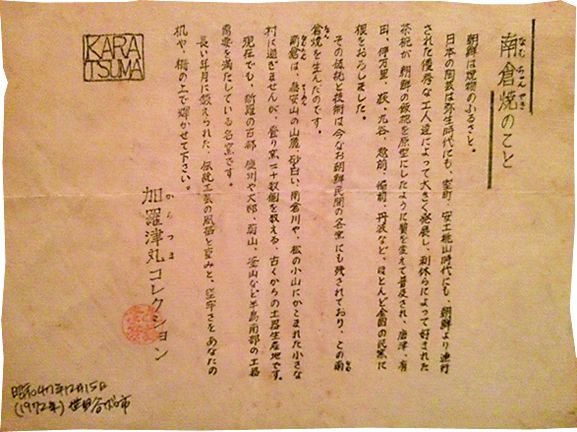 南倉焼のこと
なむちゃんやき
朝鮮は焼物のふるさと。
日本の陶芸は弥生時代にも、室町、安土桃山時代にも、朝鮮より連行
された優秀な工人達によって大きく発展し、利休らによって好まれた
茶碗が、朝鮮の飯碗を原型にしたように質を変えて普及され、唐津、有
田、伊万里、萩、九谷、越前、備前、丹波など、ほとんど全国の民窯に
根をおろしました。
その伝統と技術は今なお朝鮮民間の各窯にも残されており、この南
倉焼を生んだのです。
南倉は、 山の山麓、砂白い、南倉川や、松の小山にかこまれた小さな
村に過ぎませんが、登り窯二十数個を数える、古くからの土器生産地です。
現在でも、新羅の古都、慶州や大邱、蔚山、釜山など半島南部の土器
需要を満たしている名窯です。
長い年月に鍛えられた、伝統工芸の風格と重みと、堅牢さをあなたの
机や、棚の上で輝かせて下さい。
加羅津丸コレクション
からつま
KARA
TSUMA
昭和47年12月15日
(1972年) 世田谷ボロ市